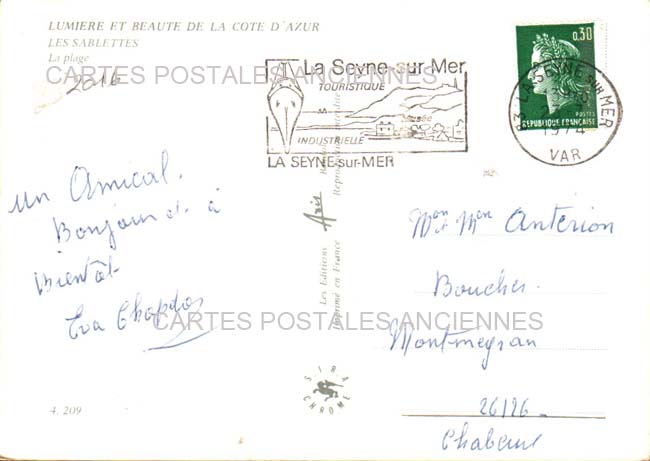 LUMIERE ET BEAUTE DE LA COTE D'AZUR
LES SABLETTES
La plage
2016
CARTES POSTALES ANCIENNES
La Seyne-sur-Mer
TOURISTIQUE
Musée
INDUSTRIELLE
LA SEYNE-sur-MER
0,30
POSTES
REPUBLIQUE FRANÇAISE
83 LA SEYNE SUR MER
1974
VAR
un Amical.
Bonjour et à
Bientôt
Eva
Les Editions
Imprimé en France
CARTES POSTALES ANCIENNES
SIRA
CHROME
4. 209
Mon et Men Antérion
Boucher.
Montmeyran
26126
Chabeuil